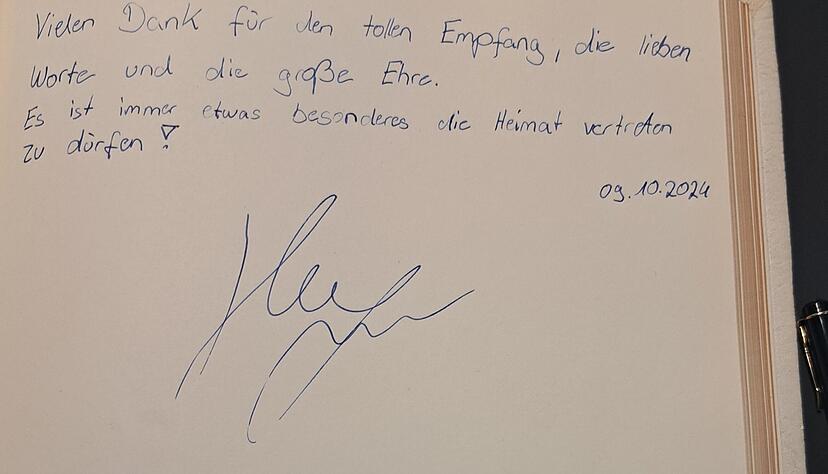 Vielen Dank für den tollen Empfang, die lieben
Worte und die große Ehre.
Es ist immer etwas besonderes die Heimat vertreten
zu dürfen!
09.10.2024